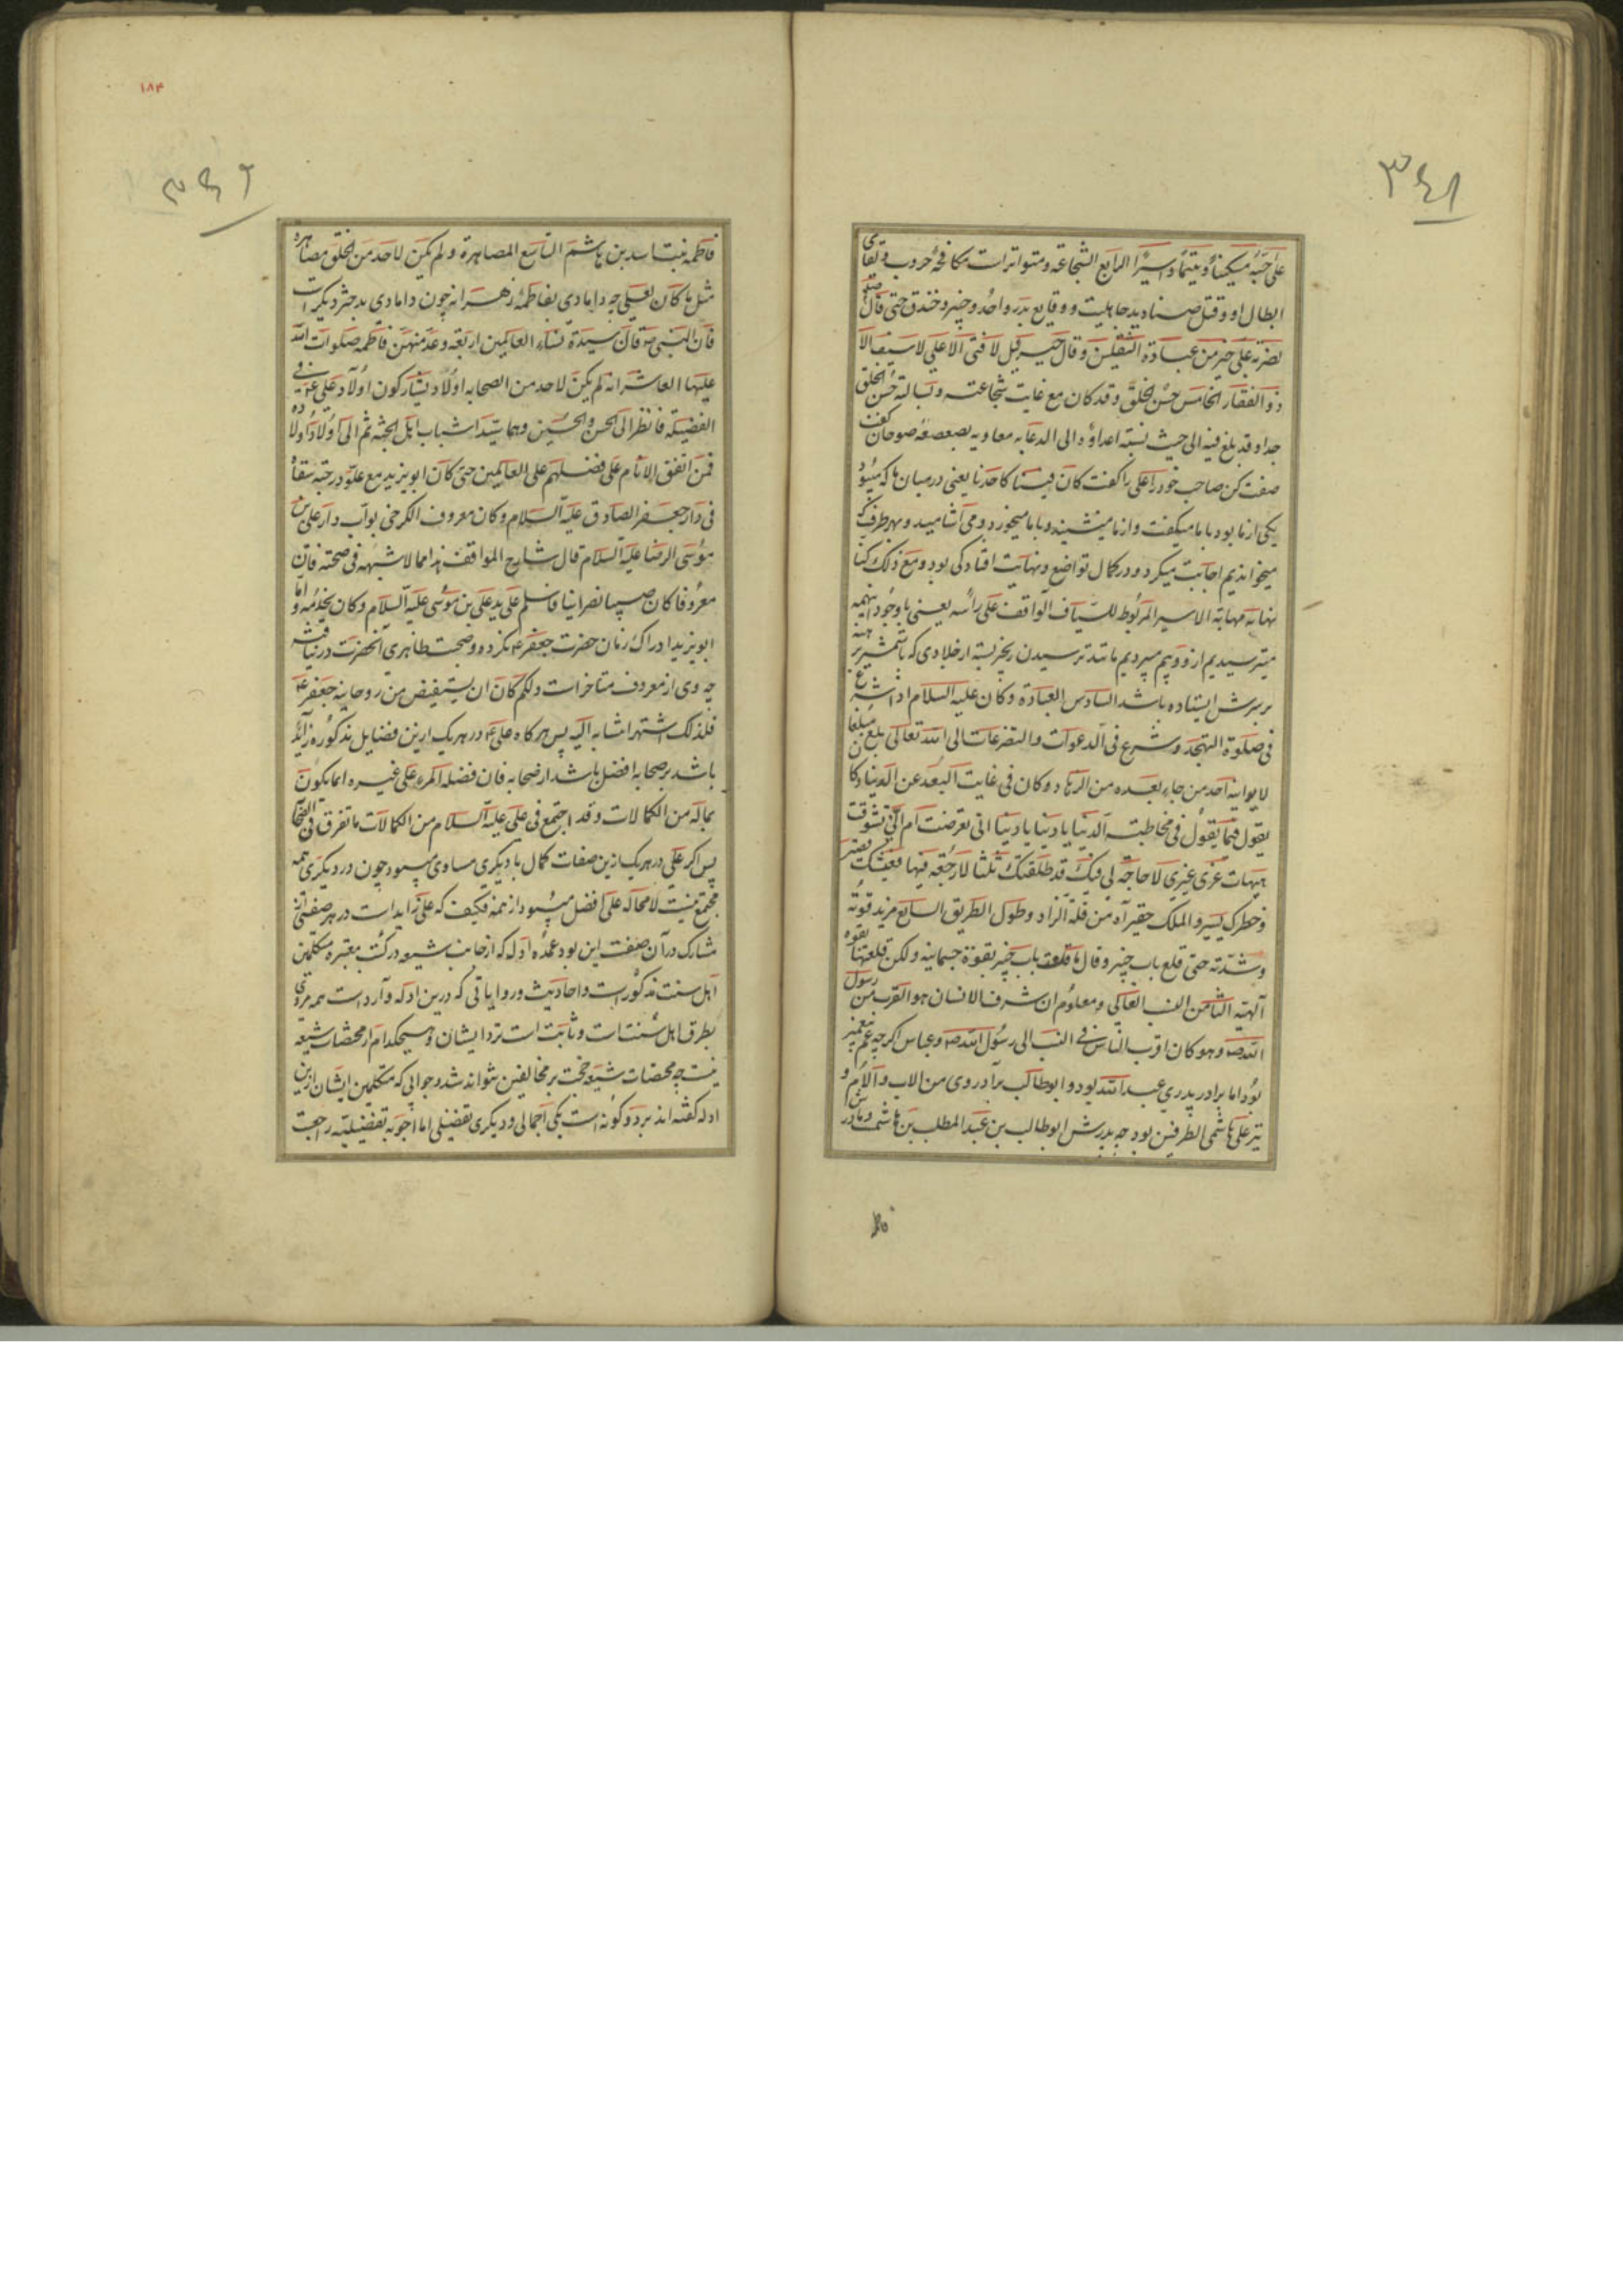 ۳۶۱
علی حبه مسکینا و یتیما و اسیرا الرابع الشجاعة و متواتر است مکافحهٔ حروب و تلقای
ابطال او و قتل صنادید جاهلیت و وقایع بدر و احد و خیبر و خندق حتی قال صلعم
لضربة علی خیر من عبادة الثقلین و قال جبرئیل لا فتی الا علی لا سیف الا
ذو الفقار الخامس حسن الخلق و قد کان مع غایت شجاعته و بسالته حسن الخلق
جدا و قد بلغ فیه الی حیث نسبته اعداؤه الی الدعابه معاویه بصعصعه صوحان گفت
صفت کن صاحب خود را علی را گفت کان فینا کاحدنا یعنی در میان ما که میبود
یکی از ما بود با ما میگفت و از ما میشنید و با ما میخورد و می آشامید و بهر طرف که
میخواندیم اجابت میکرد و در کمال تواضع و نهایت افتادگی بود و مع ذلک کنا
نهابه مهابة الاسیر المربوط للسیاف الواقف علی رأسه یعنی با وجود اینهمه
میترسیدیم از و و بیم میبردیم مانند ترسیدن زنجیر بسته از جلادی که با شمشیر برهنه
بر سرش ایستاده باشد السادس العبادة و کان علیه السلام اذا شرع
فی صلوة التهجد و شرع فی الدعوات و التضرعات الی الله تعالی بلغ مبلغا
لا یوازیه احد من جاء بعده من الزهاد و کان فی غایت البعد عن الدنیا و کان
یقول فیما یقول فی مخاطبته الدنیا یا دنیا یا دنیا انی تعرضت ام الی تشوقت
هیهات غری غیری لا حاجة لی فیک قد طلقتک ثلثا لا رجعة فیها فعیشک قصیر
و خطرک یسیر و املک حقیر آه من قلة الزاد و طول الطریق السابع مزید قوته
و شدته حتی قلع باب خیبر و قال ما قلعت باب خیبر بقوة جسمانیه و لکن قلعتها بقوه
آلهیه الثامن النسب العالی و معلوم ان شرف الانسان هو القرب من رسول
الله ص و هو کان اقرب الناس فی النسب الی رسول الله ص و عباس اگر چه عم پیغمبر
بود اما برادر پدری عبد الله بود و ابو طالب برادر وی من الاب و الام و
نیز علی هاشمی الطرفین بود چه پدرش ابو طالب بن عبد المطلب بن هاشمست و مادرش
۱۸۴
۳۶۲
فاطمه بنت اسد بن هاشم التاسع المصاهرة و لم یکن لاحد من الخلق مصاهرة
مثل ما کان لعلی چه دامادی بفاطمهٔ زهرا نه چون دامادی بدختر دیگر است
فان النبی ص قال سیدة نساء العالمین اربعة و عد منهن فاطمه صلوات الله
علیها العاشر انه لم یکن لاحد من الصحابه اولاد یشارکون اولاد علی ع فی
الفضیلة فانظر الی الحسن و الحسین و هما سیدا شباب اهل الجنه ثم الی اولاد اولاده
فمن اتفق الانام علی فضلهم علی العالمین حتی کان ابو یزید مع علو درجته سقاء
فی دار جعفر الصادق علیه السلام و کان معروف الکرخی بواب دار علی بن
موسی الرضا علیه السلام قال شارح المواقف هذا مما لا شبهه فی صحته فان
معروفا کان صبیا نصرانیا فاسلم علی ید علی بن موسی علیه السلام و کان یخدمه و اما
ابو یزید ادراک زمان حضرت جعفر ع نکرده و صحبت ظاهری آنحضرت در نیافته
چه وی از معروف متاخر است و لکنه کان ان یستفیض من روحانیة جعفر ع
فلذلک اشتهر انتسابه الیه پس هر کاه علی ع در هر یک ازین فضایل مذکوره زاید
باشد بر صحابه افضل باشد از صحابه فان فضلة المرء علی غیره انما یکون
بماله من الکمالات و قد اجتمع فی علی علیه السلام من الکمالات ما تفرق فی الصحابة
پس اگر علی در هر یک ازین صفات کمال با دیگری مساوی میبود چون در دیگری همه
مجتمع نیست لا محاله علی افضل میبود از همه فکیف که علی زاید است در هر صفتی از
مشارک در آن صفت این بود عمدهٔ ادله که از جانب شیعه در کتب معتبره متکلمین
اهل سنت مذکور است و احادیث و روایاتی که درین ادله وارد است همه مروی
بطرق اهل سنت است و ثابت است نزد ایشان و هیچکدام از مختصات شیعه
نیست چه مختصات شیعه حجت بر مخالفین نتواند شد و جوابی که متکلمین ایشان ازین
ادله گفته اند بر دو گونه است یکی اجمالی و دیگری تفضیلی اما اجوبه تفضیلیه راجعست